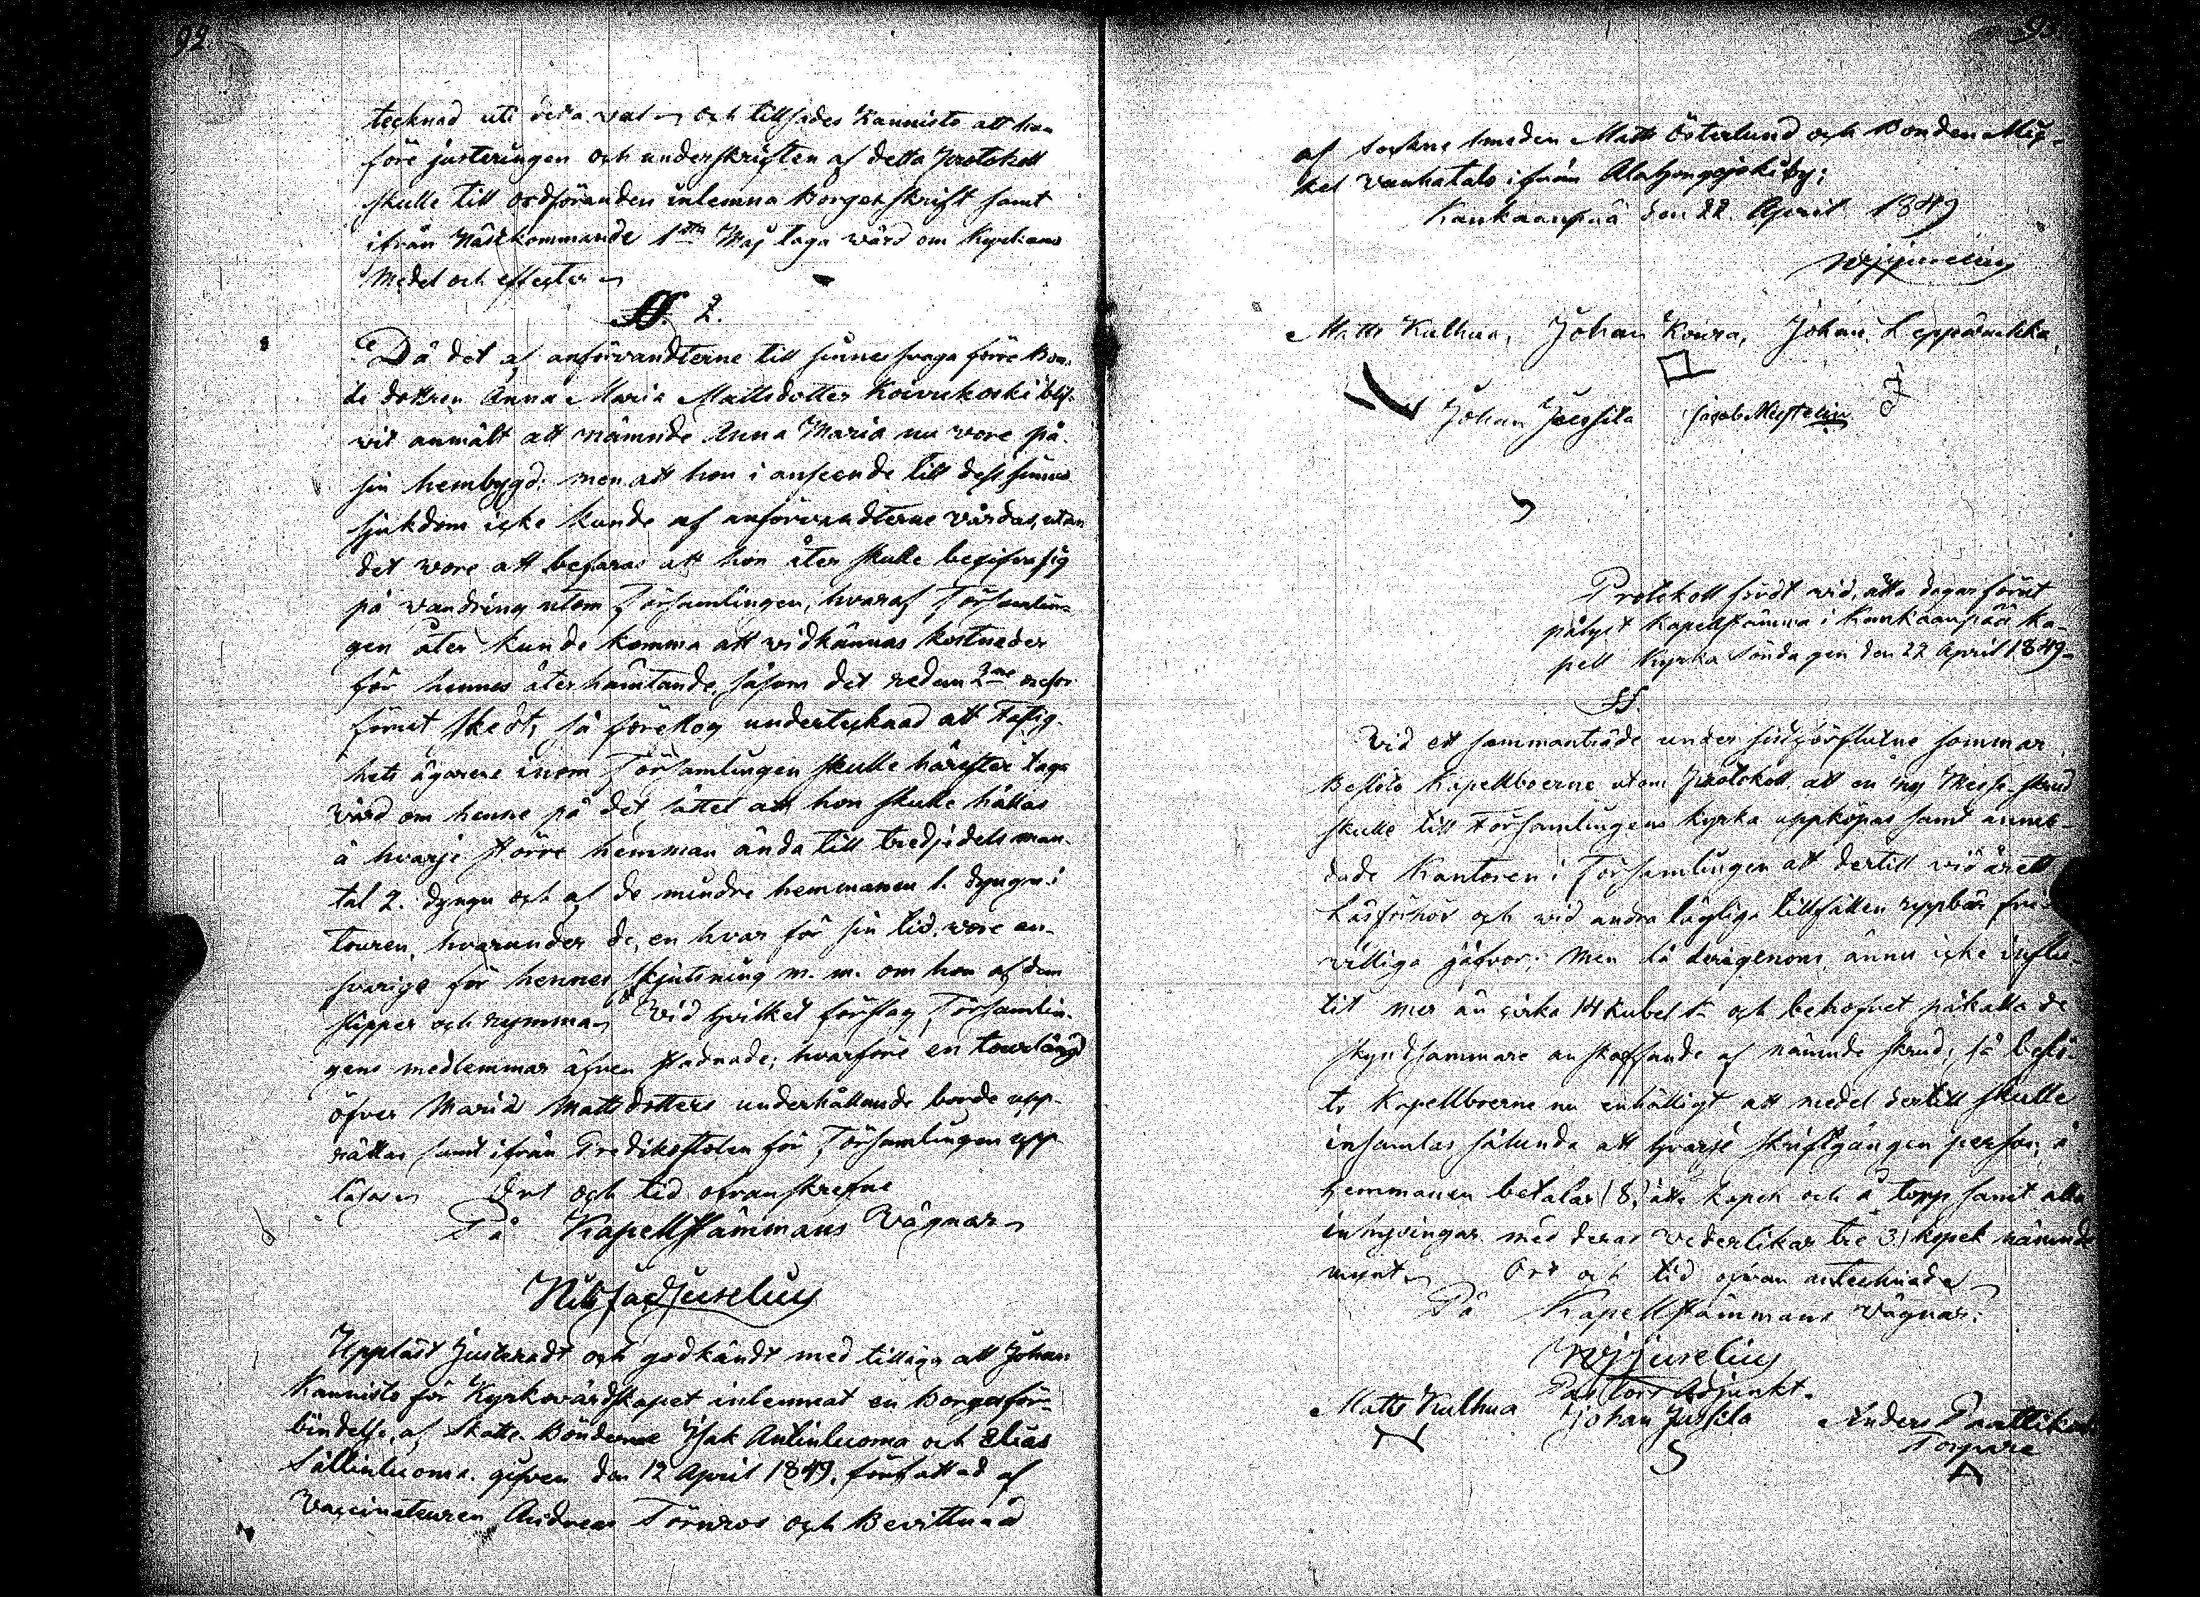 92.
tecknad uti dera val och tillsades Kannisto att han
före justeringen och underskriften af detta Protokoll
skulle till ordföranden inlemna Borgesskrift samt
ifrån nästkommande 1sta Maj taga vård om Kyrkans
Medel och effecter
§. 2.
Då det af anförvandterne till sinnes svaga förre Bon-
de dottren Anna Maria Mattsdotter Koivukoski blif-
vit anmält att nämnde Anna Maria nu vore på
sin hembygd; men att hon i anseende till dess sinnes
sjukdom icke kunde af anförvandterne vårdas, utan
det vore att befaras att hon åter skulle begifva sig
på vandring utom Församlingen, hvaraf Församlin-
gen åter kunde komma att vidkännas kostnader
för hennes återhämtande, såsom det redan 2ne resor
förut skedt, så föreslog undertecknad att Fastig-
hets ägarene inom Församlingen skulle härefter taga
vård om henne på det sättet att hon skulle hållas
å hvarje större hemman ända till tredjedels man-
tal 2. dygn och af de mindre hemmanen 1. dygn i
touren, hvarunder de, en hvar för sin tid, vore an-
svarige för hennes skjutsning m. m. om hon af dem
slipper och rymma. Vid hvilket förslag Församlin-
gens medlemmar äfven stadnade; hvarföre en tourlängd
öfver Maria Mattsdotters underhållande borde upp-
rättas samt ifrån Predikstolen för Församlingen upp
läsas. Ort och tid ofvanskrefne
På Kapellstämmans Vägnar
Nils Jac Jurelius
Uppläst justeradt och godkändt med tillägg att Johan
Kannisto för Kyrkovärdskapet inlemnat en Borgesför-
bindelse, af Skatte Bönderne Isak Antinluoma och Elias
Sällinluoma gifven den 12 April 1849, författad af
Vaccinateuren Andreas Törnros och Bevittnad
af Sockne smeden Matts Österlund och Bonden Mic-
kel Vanhatalo ifrån Alahongojoki by;
Kankaanpää den 22 April 1849
NJJurelius
Matts Kulhua, Johan Koura, Johan Leppänikka,
Johan Jussila Jacob Mustelin
Protokoll fördt vid, åtta dagar förut
pålyst Kapellstämma i Kankaanpää Ka-
pell Kyrka Söndagen den 22 April 1849
§
Vid ett sammanträde under sistförflutne sommar
Beslöto Kapellboerne utom Protokoll att en ny Mess-skrud
skulle till Församlingens Kyrka uppköpas samt anmo-
dade Kantoren i Församlingen att dertill vid årets
Läsförhör och vid andra läglige tillfällen uppbär fri-
villiga gåfvor; Men då derigenom ännu icke influ-
tit mer än cirka 14 Rubel Sr och behofvet påkallade
skyndsammare anskaffande af nämnde skrud; så beslö-
to Kapellboerne nu enhälligt att medel dertill skulle
insamlas sålunda att hvarje skriftgången person, å
Hemmanen betalar (8) åtta kopek och å torp samt alla
inhysingar med deras vederlikar tre (3) kopek nämnde
mynt. Ort och tid ofvan antecknade
På Kapellstämmans Vägnar:
NJJurelius
Pastors Adjunkt.
Matts Kulhua Johan Jussila Anders
Torpare